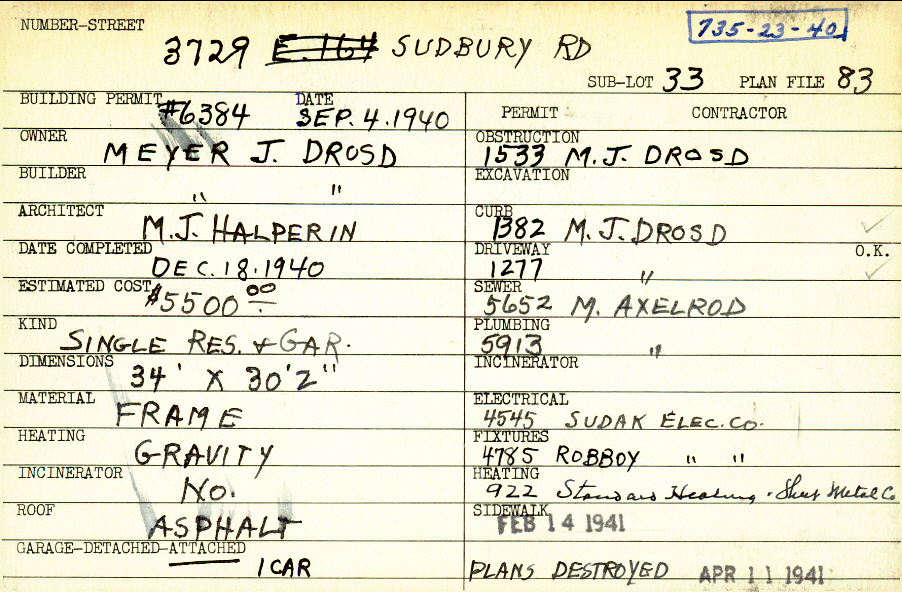 NUMBER-STREET
735-23-40
3729 E.164 SUDBURY RD
SUB-LOT 33 PLAN FILE 83
BUILDING PERMIT #6384 DATE SEP. 4. 1940
PERMIT CONTRACTOR
OWNER MEYER J. DROSD
OBSTRUCTION 1533 M.J. DROSD
BUILDER " "
EXCAVATION
ARCHITECT M.J. HALPERIN
CURB 1382 M.J. DROSD
DATE COMPLETED DEC. 18. 1940
DRIVEWAY 1277 " O.K.
ESTIMATED COST $5500 00
SEWER 5652 M. AXELROD
KIND SINGLE RES. & GAR.
PLUMBING 5913 "
DIMENSIONS 34' X 30'2"
INCINERATOR
MATERIAL FRAME
ELECTRICAL 4545 SUDAK ELEC. CO.
HEATING GRAVITY
FIXTURES 4785 ROBBOY " "
INCINERATOR NO.
HEATING 922 Standard Heating & Sheet Metal Co
ROOF ASPHALT
SIDEWALK FEB 14 1941
GARAGE-DETACHED-ATTACHED 1 CAR
PLANS DESTROYED APR 11 1941